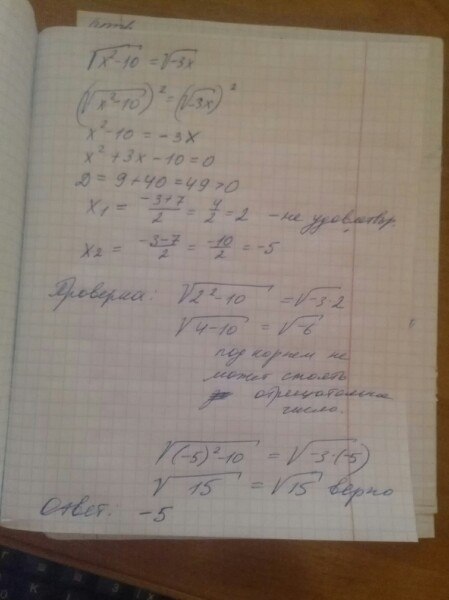 √x²-10 = √-3x
(√x²-10)² = (√-3x)²
x²-10 = -3x
x²+3x-10=0
D = 9+40=49>0
x₁ = -3+7/2 = 4/2 = 2 - не удовлетвор.
x₂ = -3-7/2 = -10/2 = -5
Проверка: √2²-10 = √-3·2
√4-10 = √-6
под корнем не
может стоять
отрицательное
число.
√(-5)²-10 = √-3·(-5)
√15 = √15 верно
Ответ: -5